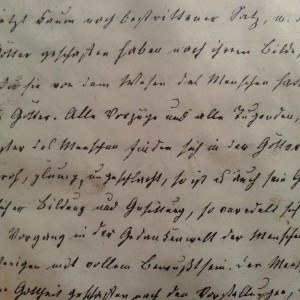 jetzt kaum noch bestrittener Satz, u. d
Götter geschaffen haben nach ihrem Bilde,
die sie von dem Wesen des Menschen hat
Götter. Alle Vorzüge und alle Tugenden,
des Menschen finden sich in den Götter
roh, plump, ungeschlacht, so ist es auch sein G
licher Bildung und Gesittung, so veredelt sich
Vorgang in der Gedankenwelt der Mensche
mit vollem Bewußtsein. der Men
Gottheit geschaffen nach den Vorstellungen,